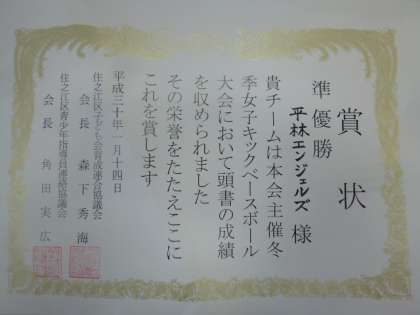 賞状
準優勝
平林エンジェルズ 様
貴チームは本会主催冬
季女子キックベースボール
大会において頭書の成績
を収められました
その栄誉をたたえここに
これを賞します
平成三十年一月十四日
住之江区子ども会育成連合協議会
会長 森下秀海
住之江区青少年指導員連絡協議会
会長 角田実広